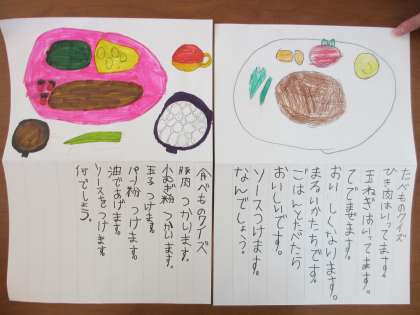 たべものクイズ
ひき肉はいってます。
玉ねぎはいってます。
てでまぜます。
おいしくなります。
まるいかたちです。
ごはんとたべたら
おいしいです。
ソースつけます。
なんでしょう。
食べものクイズ
豚肉つかいます。
小むぎ粉つかいます。
玉子つけます。
パン粉つけます。
油であげます。
ソースをつけます。
何でしょう。